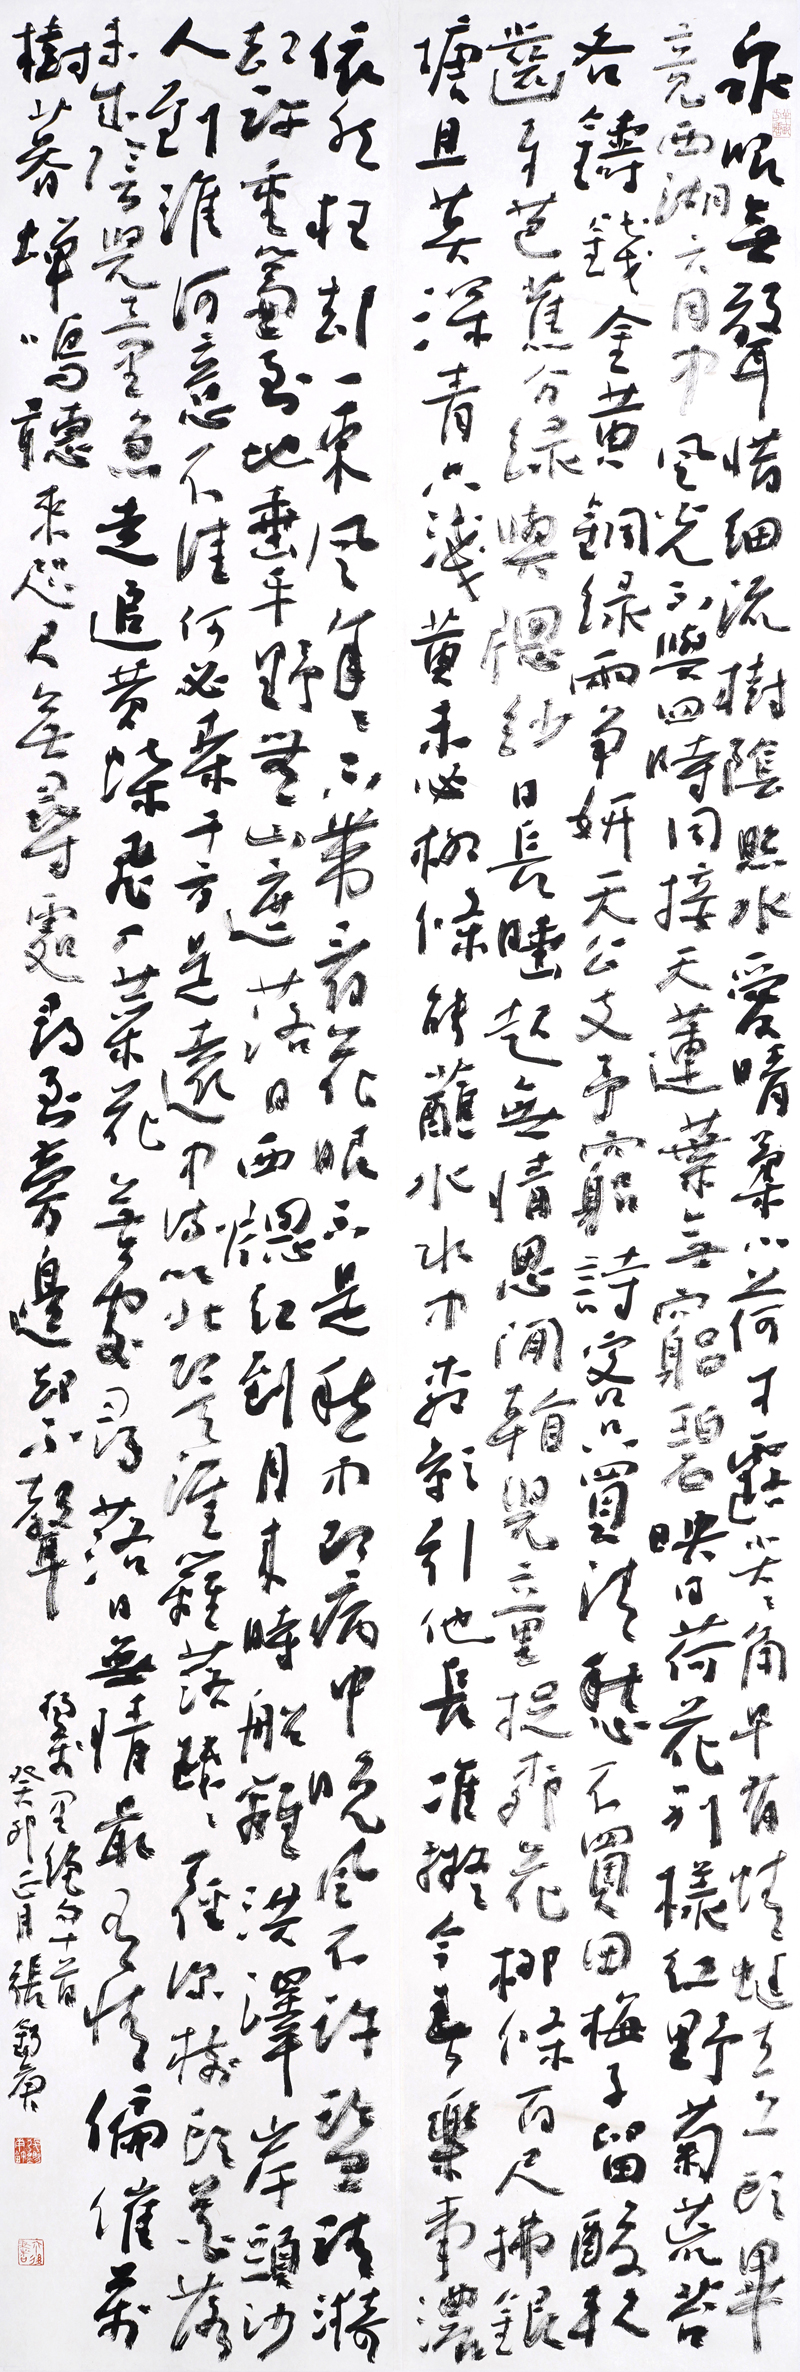 泉眼無聲惜細流樹陰照水愛晴柔小荷才露尖尖角早有蜻蜓立上頭畢
竟西湖六月中風光不與四時同接天蓮葉無窮碧映日荷花別樣紅野菊荒苔
各鑄錢金黃銅綠兩爭妍天公支予窮詩客只買清愁不買田梅子留酸軟
齒牙芭蕉分綠與窗紗日長睡起無情思閒看兒童捉柳花柳條百尺拂銀
塘且莫深青只淺黃未必柳條能蘸水水中柳影引他長准擬今春樂事濃
依然枉却一東風年年不帶看花眼不是愁中即病中晚風不許鑑清漪
却許重簾到地垂平野無山遮落日西窗紅到月來時船離洪澤岸頭沙
人到淮河意不佳何必桑干方是遠中流以北即天涯籬落疏疏一徑深樹頭花落
未成陰兒童急走追黃蝶飛入菜花無處尋落日無情最有情偏催萬
樹暮蟬鳴聽來咫尺無尋處尋到旁邊却不聲
楊萬里絕句十首
癸卯正月張錫庚